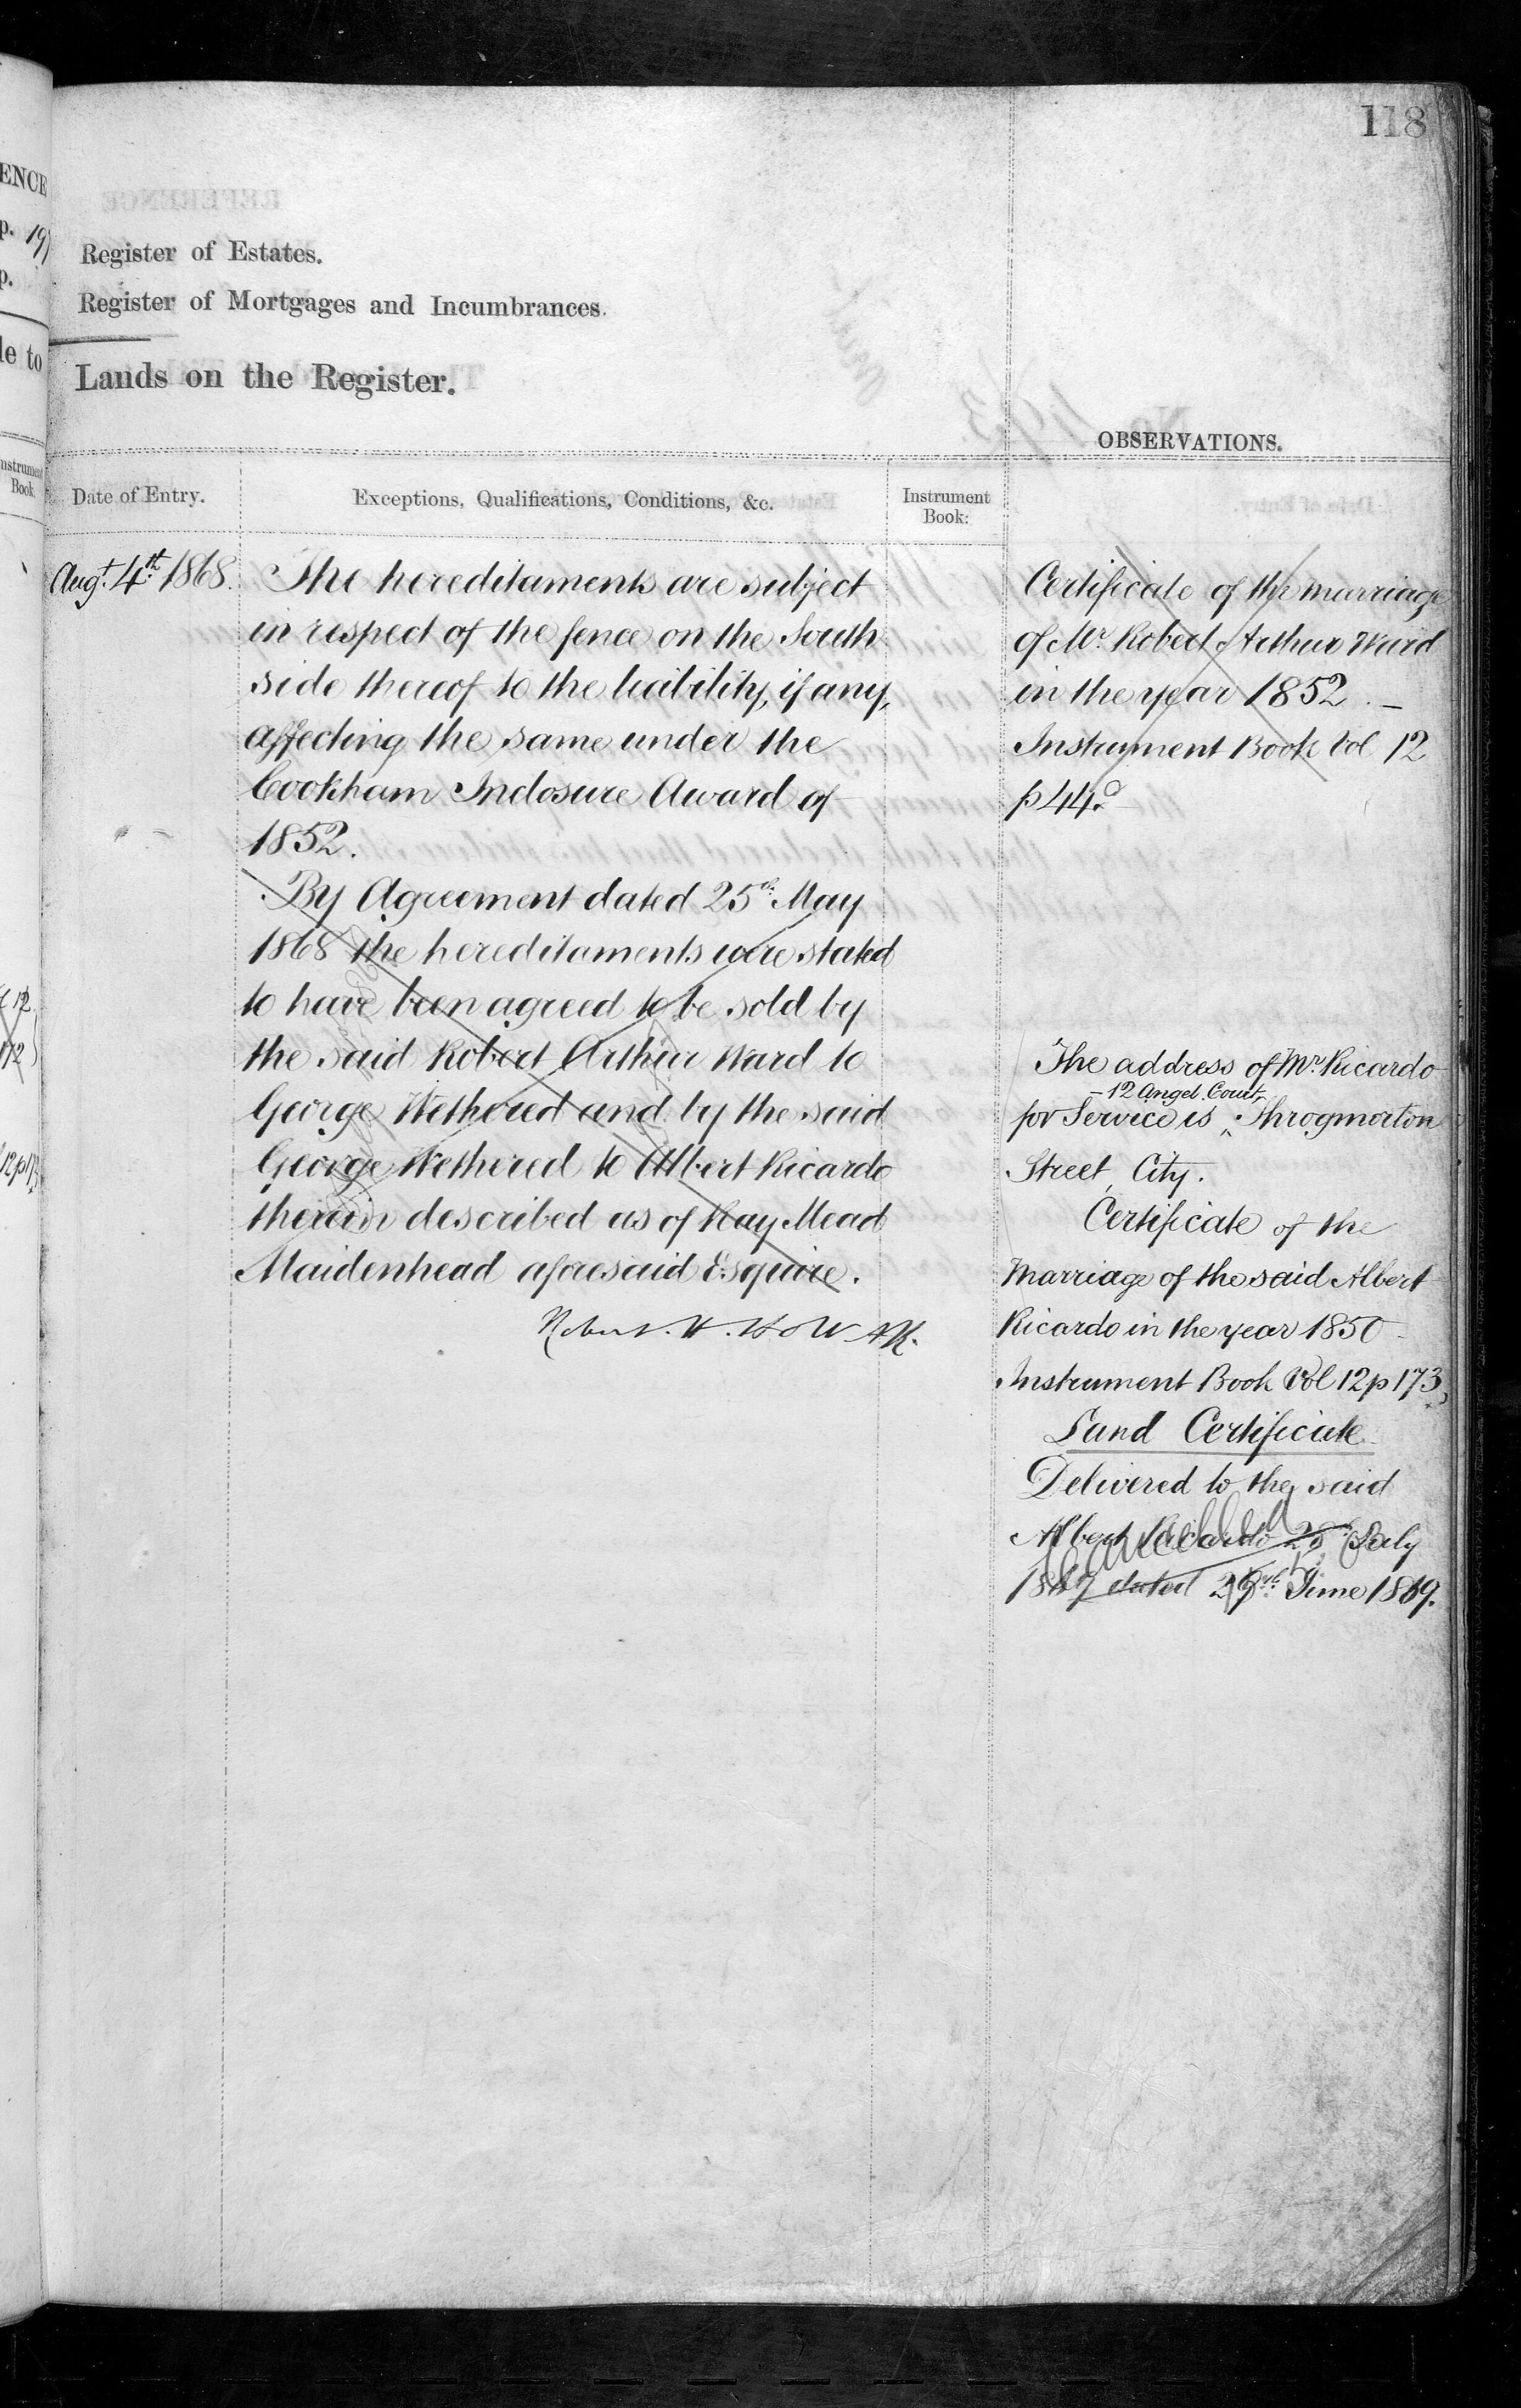 118
ENCE
p. 19
p.
le to
Instrument
Book
Register of Estates.
Register of Mortgages and Incumbrances.
Lands on the Register.
OBSERVATIONS.
Date of Entry.
Exceptions, Qualifications, Conditions, &c.
Instrument
Book:
Augt. 4th 1868.
The hereditaments are subject
in respect of the fence on the South
side thereof to the liability, if any,
affecting the same under the
Cookham Inclosure Award of
1852.
By Agreement dated 25th May
1868 the hereditaments were stated
to have been agreed to be sold by
the said Robert Arthur Ward to
George Wethered and by the said
George Wethered to Albert Ricardo
therein described as of Ray Mead
Maidenhead aforesaid Esquire.
Robert. H. Holt
Certificate of the marriage
of Mr. Robert Arthur Ward
in the year 1852. –
Instrument Book Vol 12
p 44.
The address of Mr. Ricardo
– 12 Angel Court,
for Service is Throgmorton
Street, City.
Certificate of the
Marriage of the said Albert
Ricardo in the year 1850
Instrument Book Vol 12 p 173
Land Certificate
Delivered to the said
Albert Ricardo 28 July
1869 dated 29th June 1869.
Cancelled